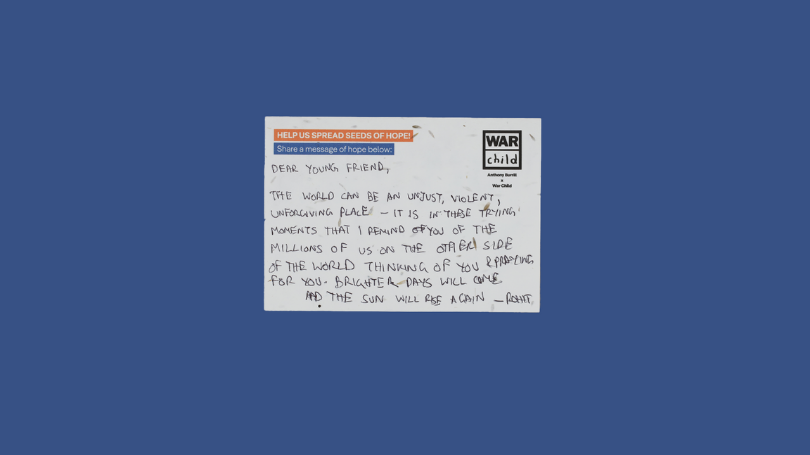 HELP US SPREAD SEEDS OF HOPE!
Share a message of hope below:
WAR
child
Anthony Burrill
x
War Child
DEAR YOUNG FRIEND,
THE WORLD CAN BE AN UNJUST, VIOLENT,
UNFORGIVING PLACE - IT IS IN THESE TRYING
MOMENTS THAT I REMIND YOU OF THE
MILLIONS OF US ON THE OTHER SIDE
OF THE WORLD THINKING OF YOU & PRAYING
FOR YOU. BRIGHTER DAYS WILL COME
AND THE SUN WILL RISE AGAIN - ROHIT.